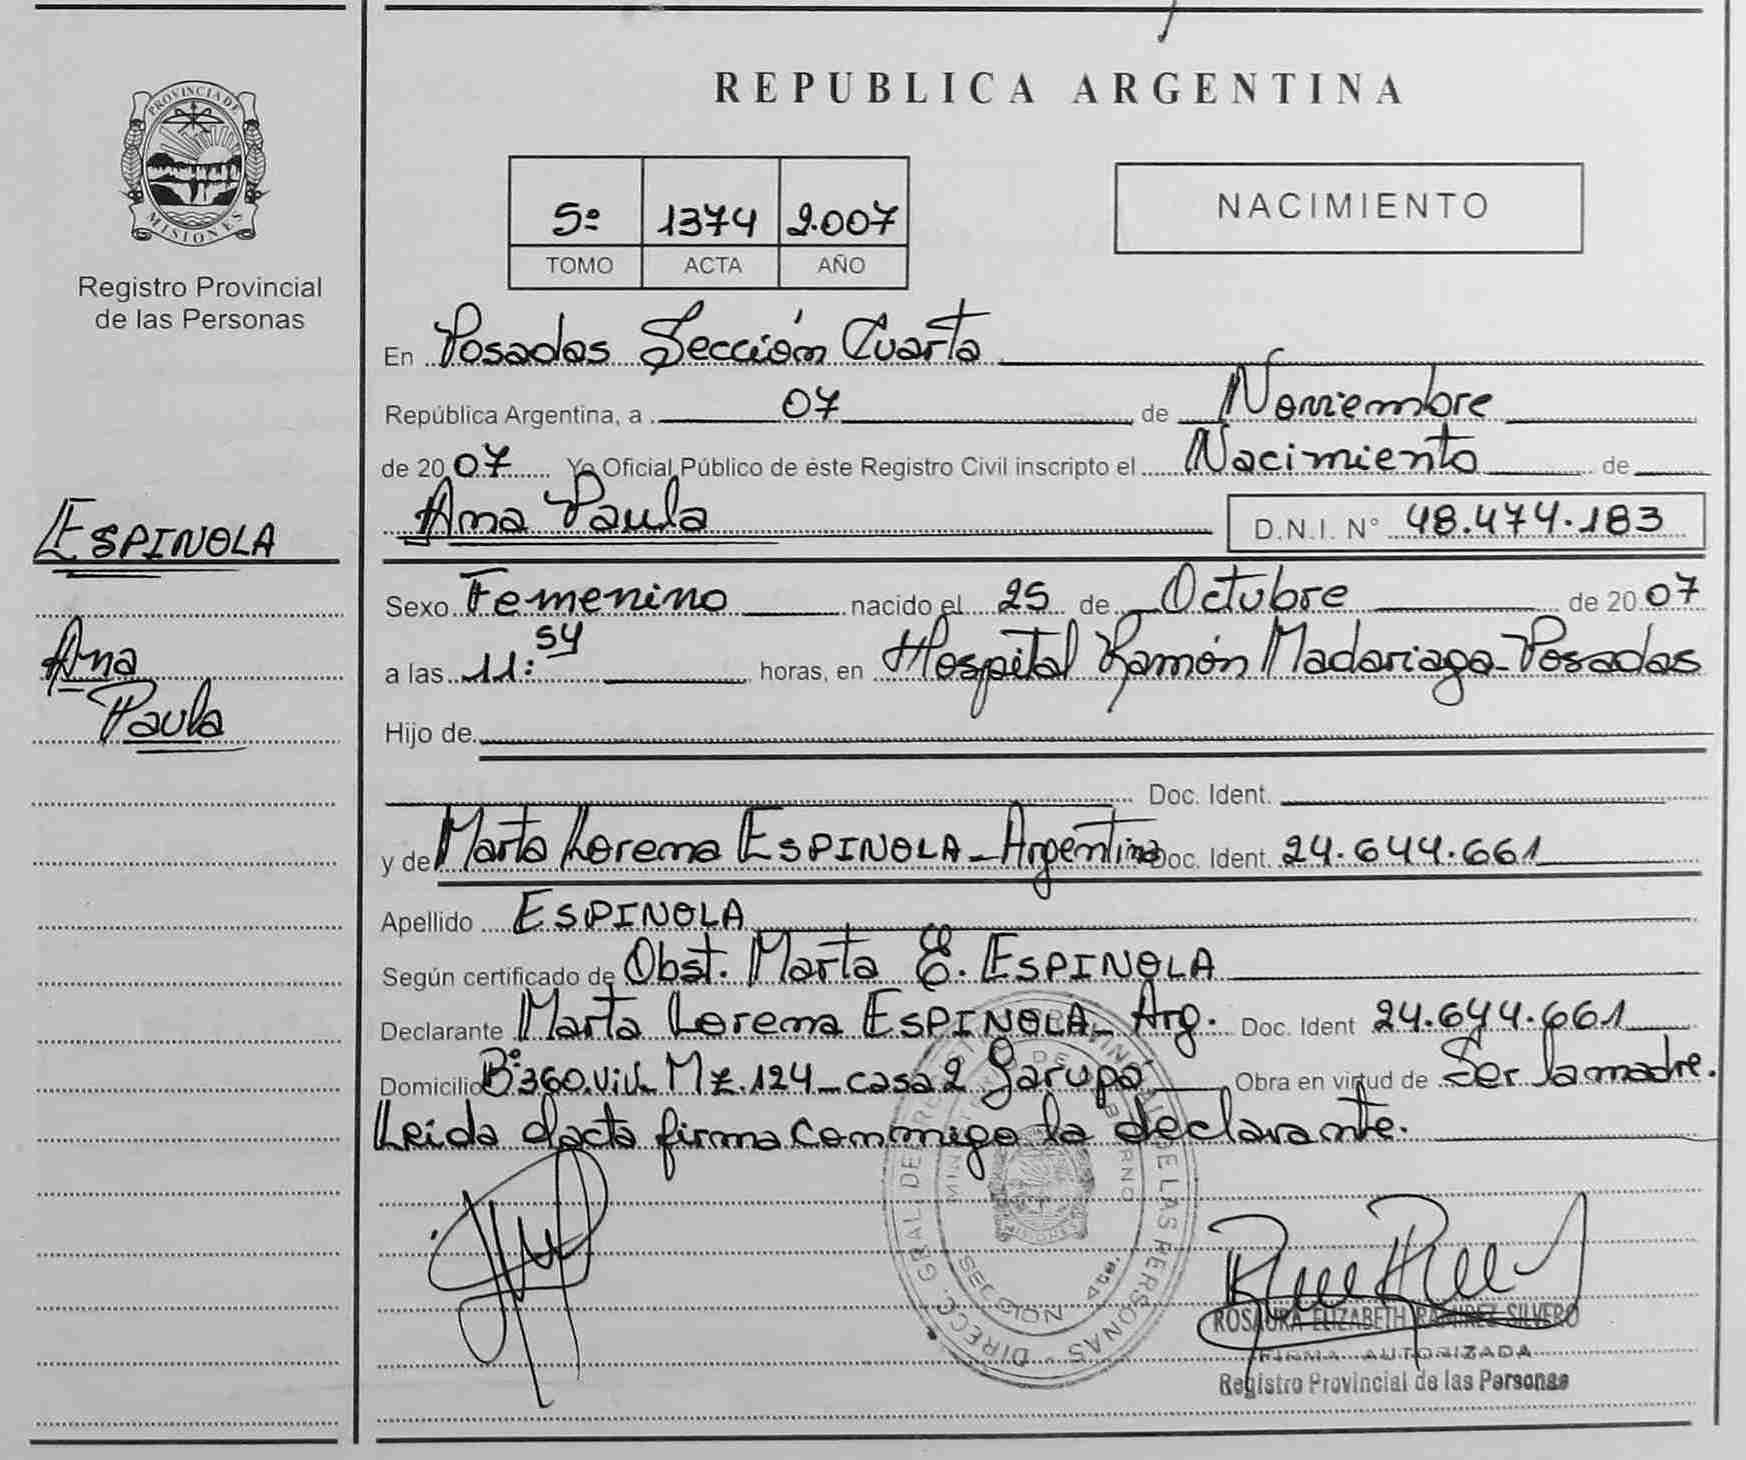 PROVINCIA DE
MISIONES
Registro Provincial
de las Personas
ESPINOLA
Ana
Paula
REPUBLICA ARGENTINA
5º 1374 2.007
TOMO ACTA AÑO
NACIMIENTO
En Posadas Sección Cuarta
República Argentina, a 07 de Noviembre
de 2007 Yo Oficial Público de éste Registro Civil inscripto el Nacimiento de
Ana Paula D.N.I. N° 48.474.183
Sexo Femenino nacido el 25 de Octubre de 2007
a las 11:54 horas, en Hospital Ramón Madariaga - Posadas
Hijo de
Doc. Ident.
y de Marta Lorena ESPINOLA - Argentina Doc. Ident. 24.644.661
Apellido ESPINOLA
Según certificado de Obst. Marta E. ESPINOLA
Declarante Marta Lorena ESPINOLA - Arg. Doc. Ident 24.644.661
Domicilio Bº 360.viv. Mz. 124 - casa 2 Garupá Obra en virtud de Ser la madre.
Leida el acta firma conmigo la declarante.
DIRECC. GRAL. DEL REGISTRO PROVINCIAL DE LAS PERSONAS
SECCION 4ta.
ROSAURA ELIZABETH RAMIREZ SILVERO
FIRMA AUTORIZADA
Registro Provincial de las Personas